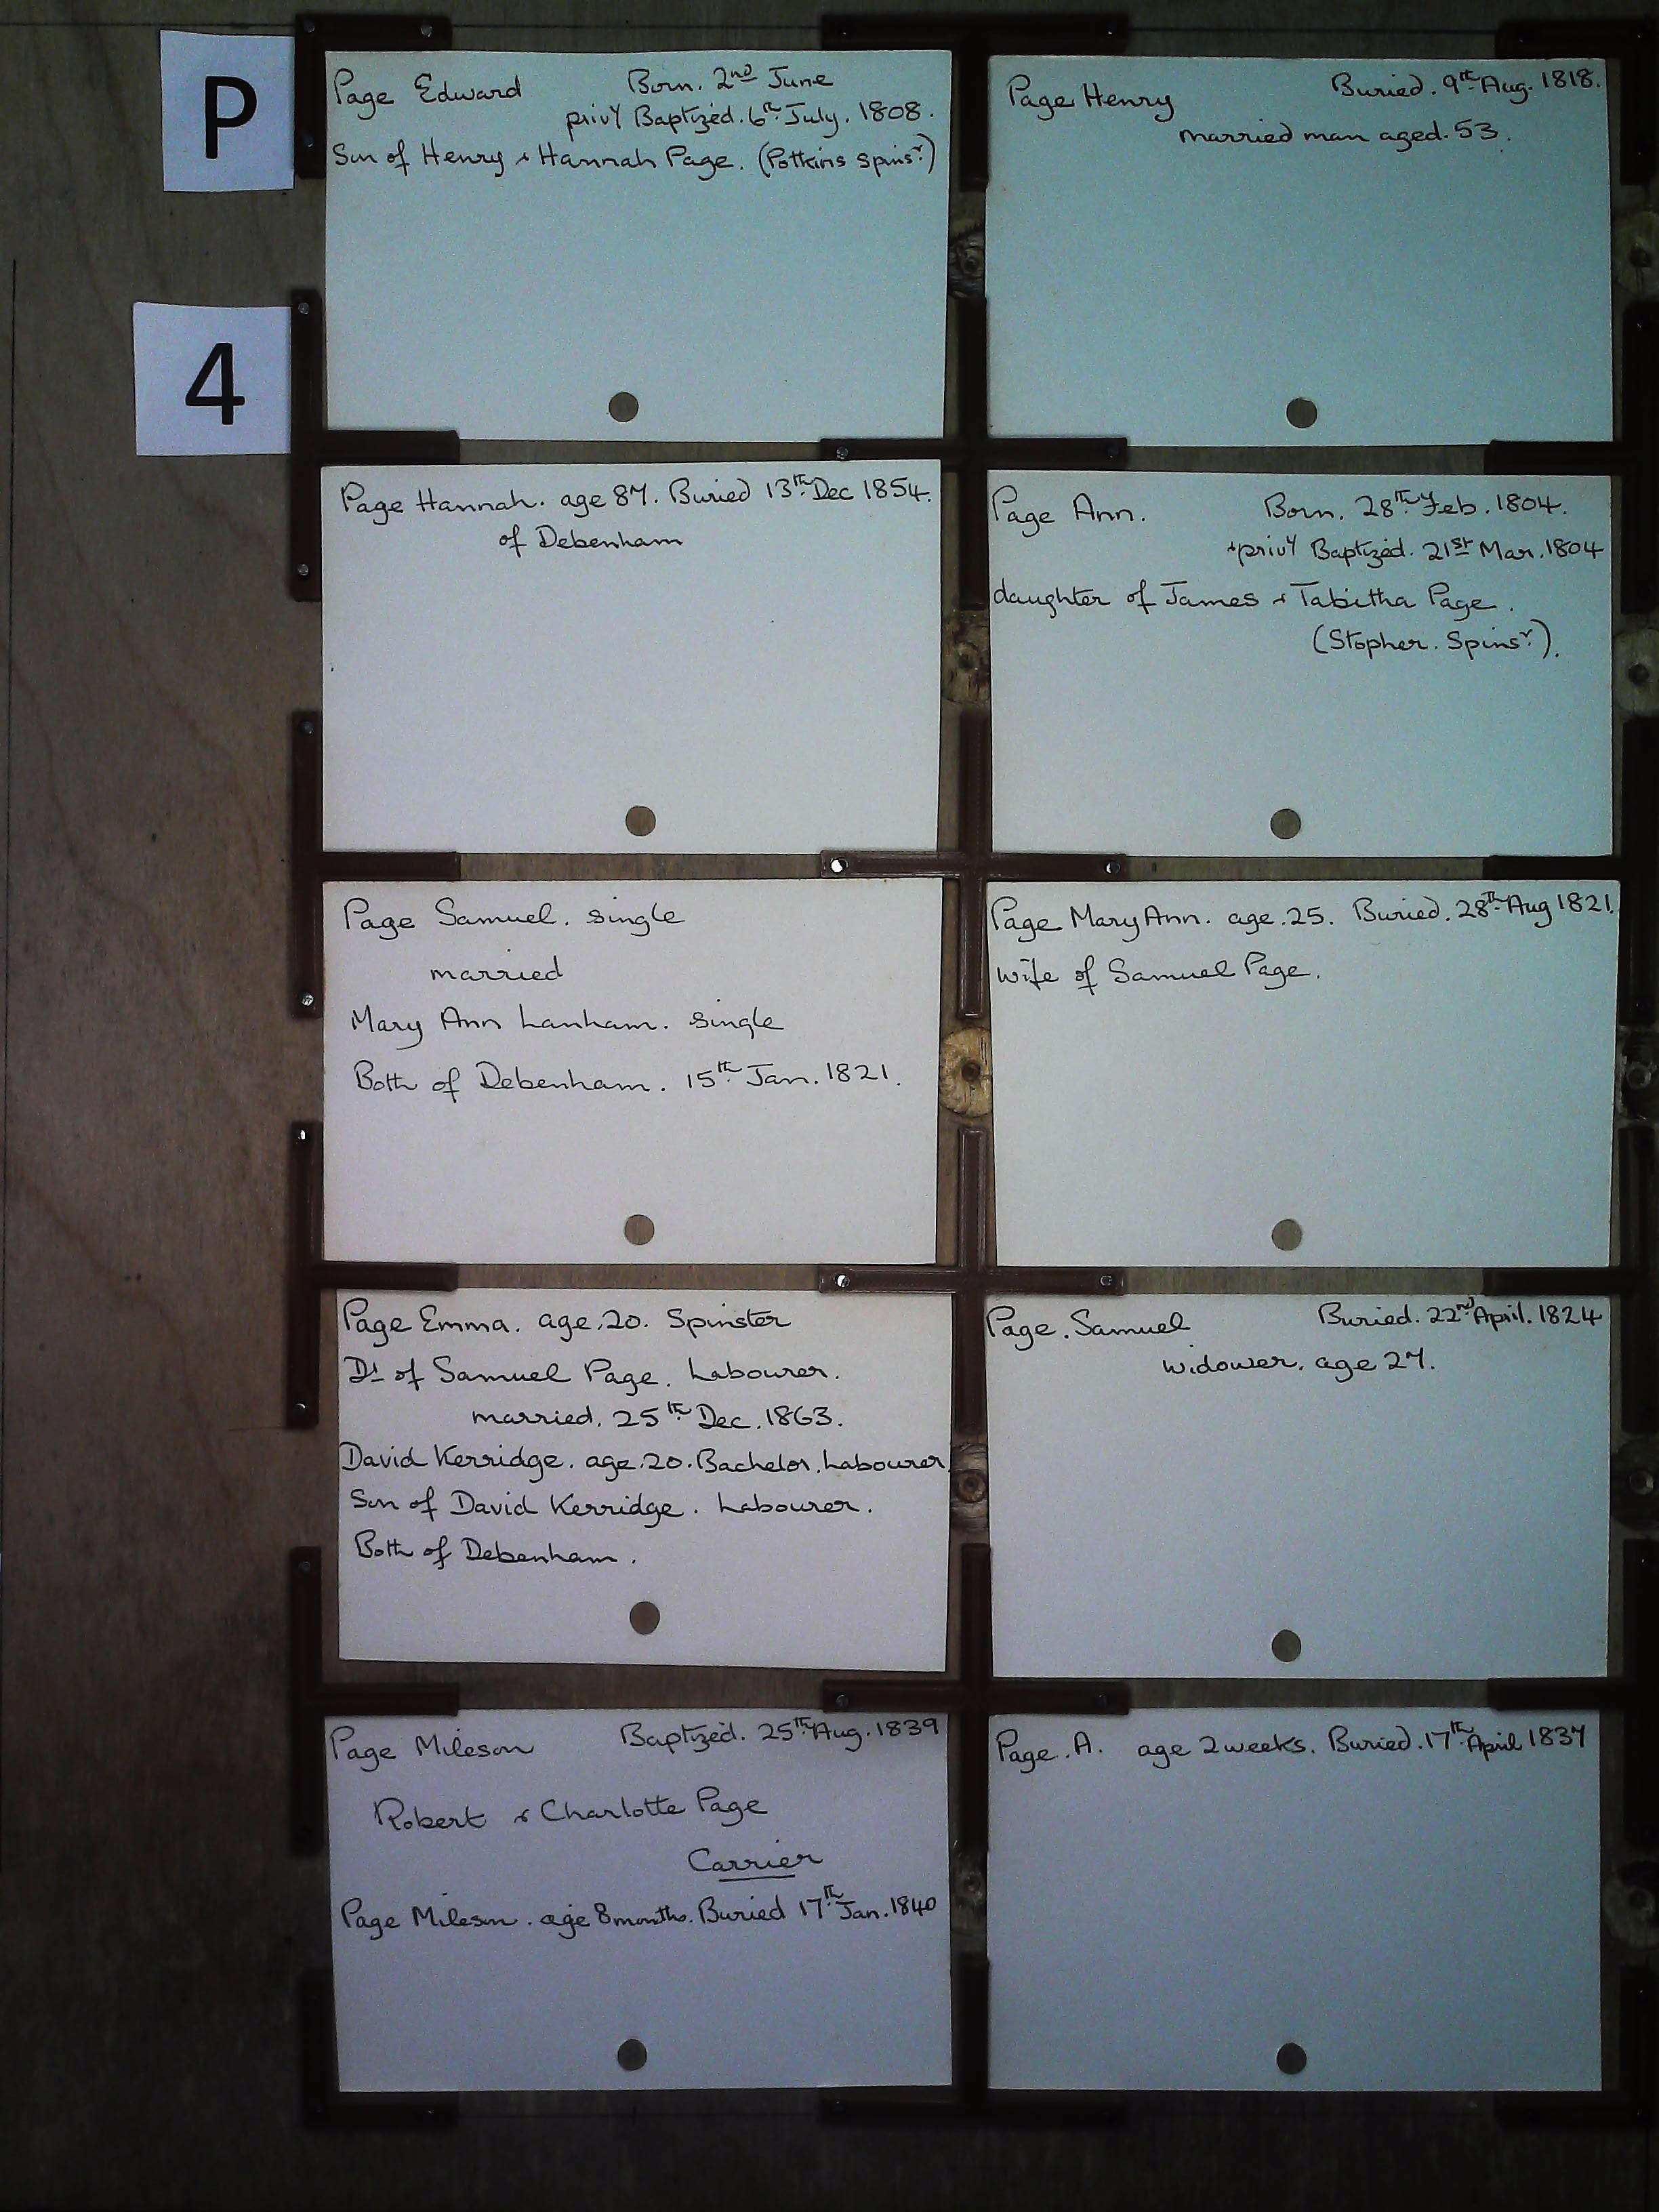 P
4
Page Edward Born. 2nd June
privy Baptized. 6th July. 1808.
Son of Henry & Hannah Page. (Potkins Spinsr.)
Page Henry Buried. 9th Aug. 1818.
married man aged. 53.
Page Hannah. age 87. Buried 13th Dec 1854.
of Debenham
Page Ann. Born. 28th Feb. 1804.
& privy Baptized. 21st Mar. 1804
daughter of James & Tabitha Page.
(Stopher. Spinsr.).
Page Samuel. single
married
Mary Ann Lanham. single
Both of Debenham. 15th Jan. 1821.
Page Mary Ann. age. 25. Buried. 28th Aug 1821.
wife of Samuel Page.
Page Emma. age. 20. Spinster
Dr of Samuel Page. Labourer.
married. 25th Dec. 1863.
David Kerridge. age. 20. Bachelor. Labourer.
Son of David Kerridge. Labourer.
Both of Debenham.
Page. Samuel Buried. 22nd April. 1824
widower. age 27.
Page Mileson Baptized. 25th Aug. 1839
Robert & Charlotte Page
Carrier
Page Mileson. age 8 months. Buried 17th Jan. 1840
Page. A. age 2 weeks. Buried. 17th April 1837